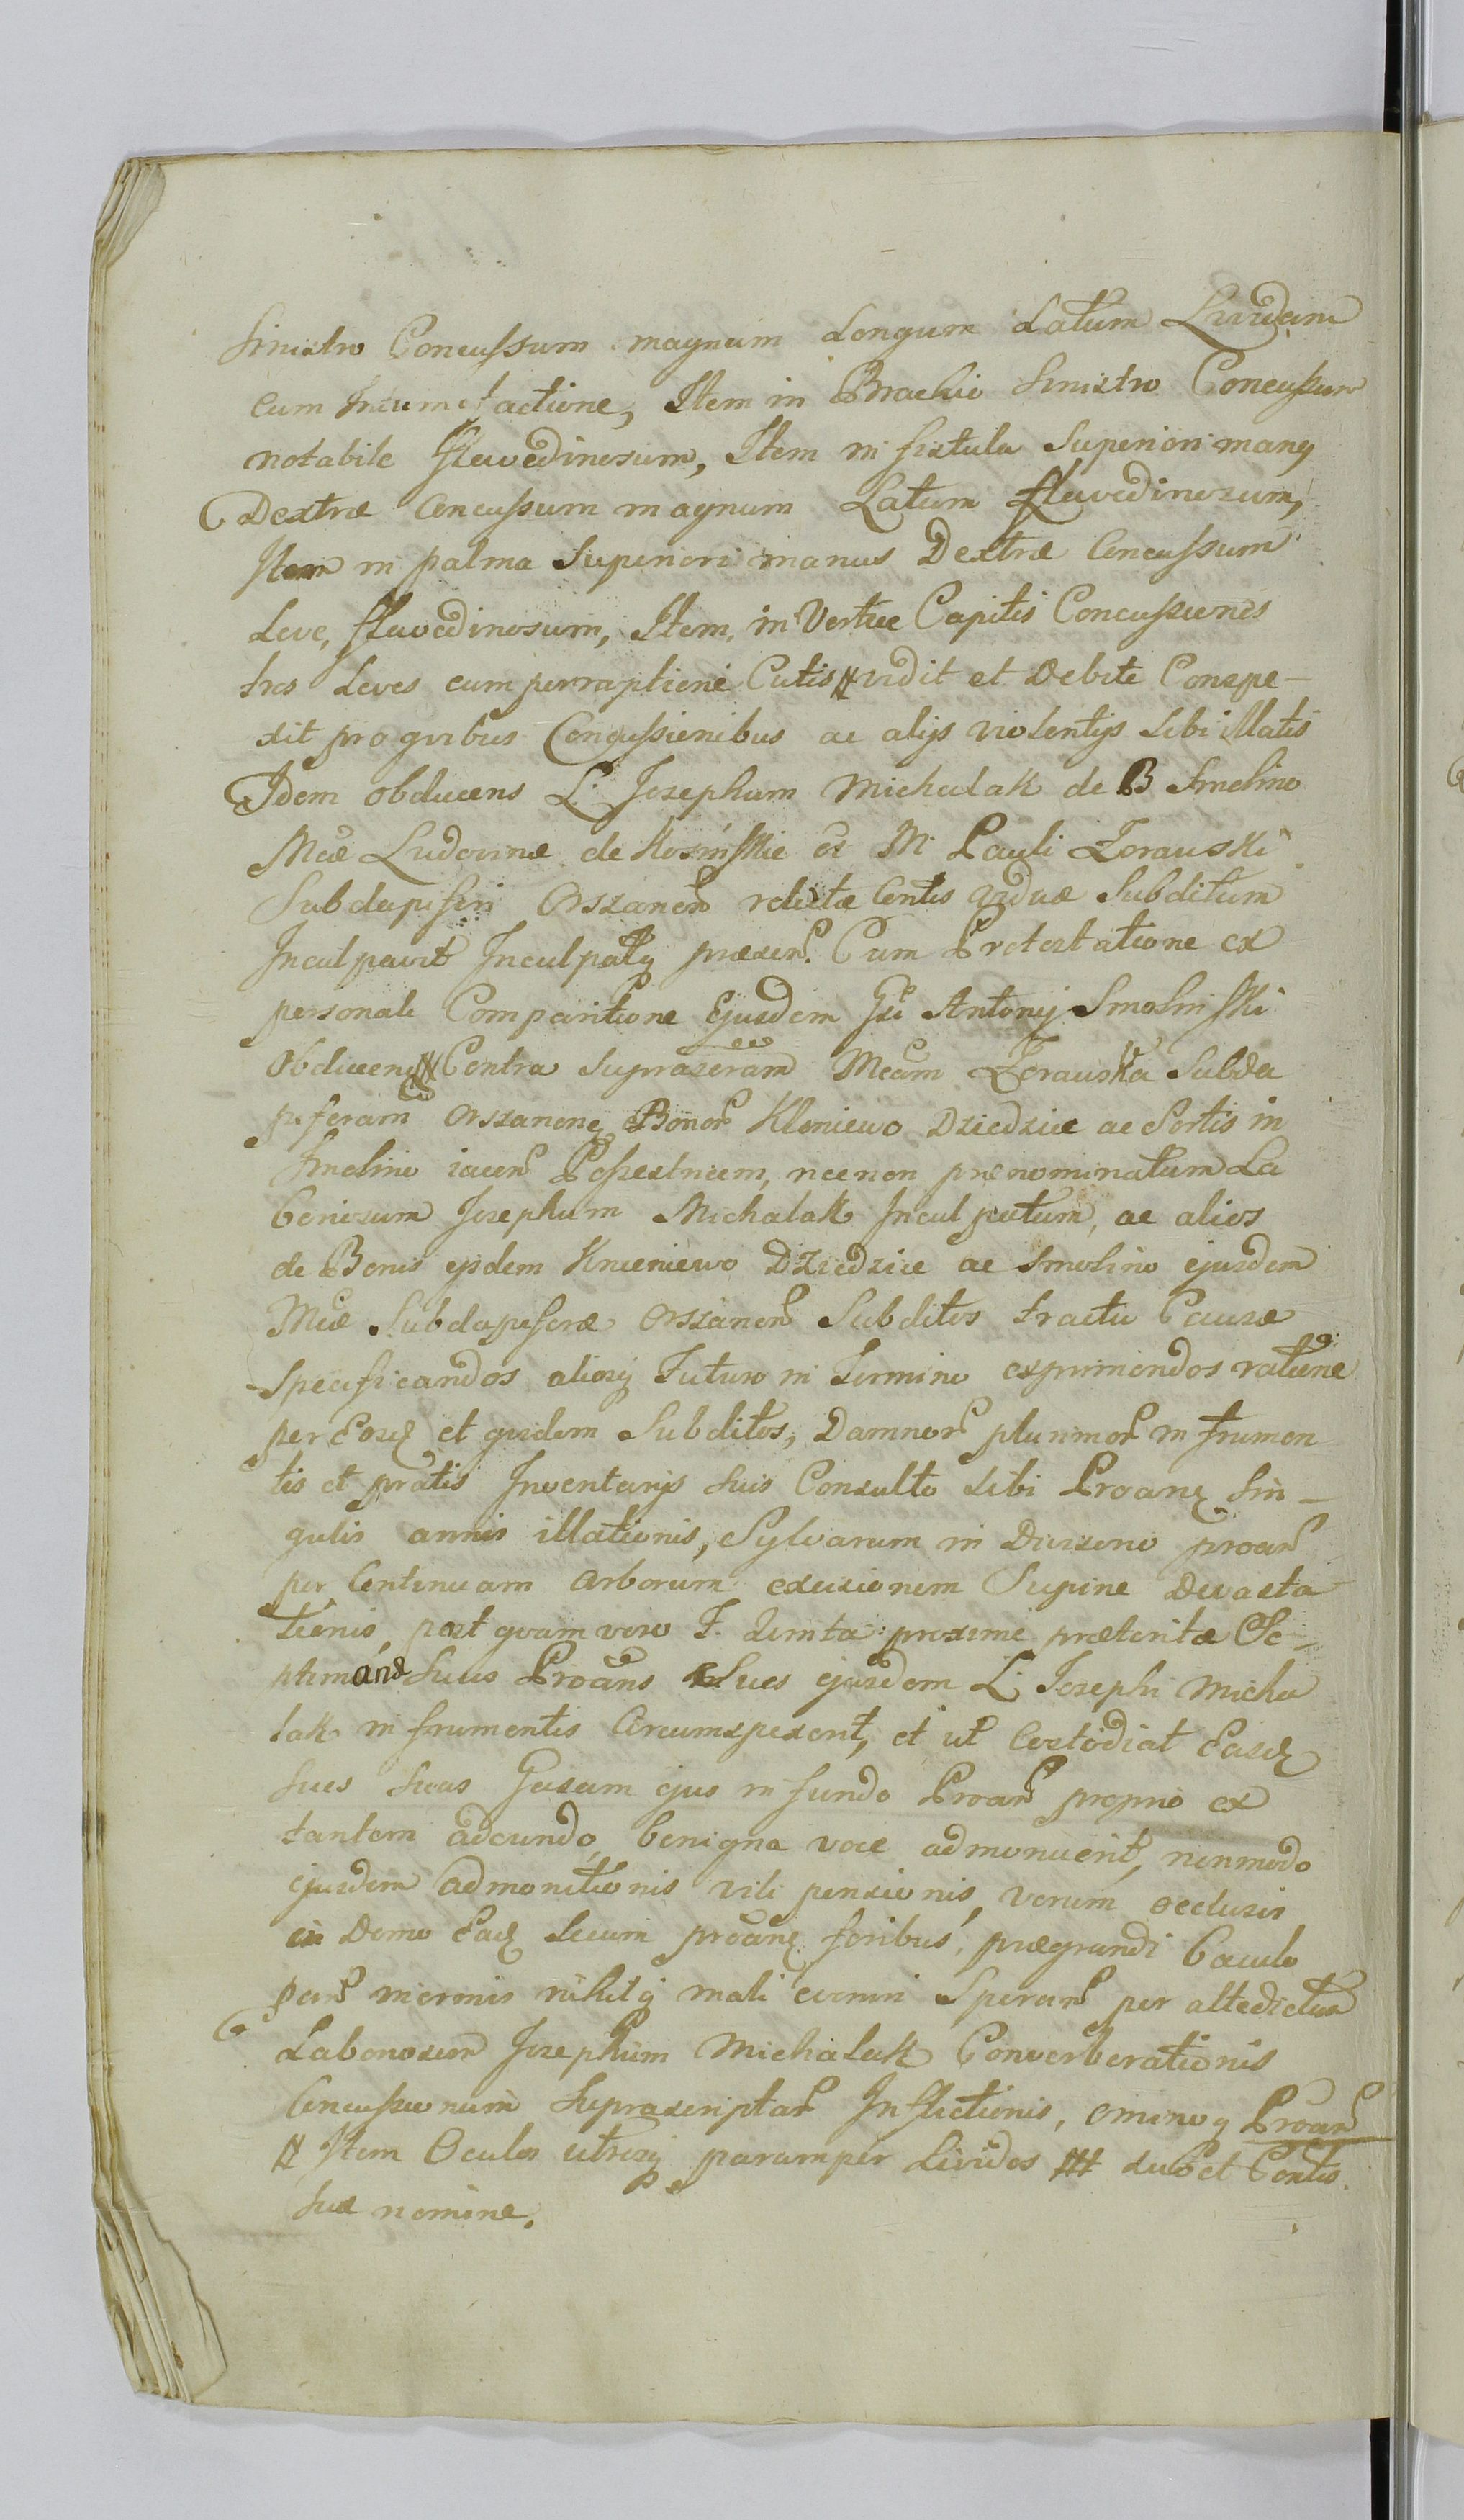 Sinistro Concussum magnum Longum Latum Lividum
cum Intumefactione, Item in Brachio Sinistro Concussum
notabile flavedinosum, Item in fistula Superiori manꝯ
Dextræ Concussum magnum Latum flavedinosum,
Item in palma Superiori manus Dextræ Concussum
Leve, flavedinosum, Item, in Vertice Capitis Concussiones
tres Leves cum perraptione Cutis # vidit et Debite Conspe-
xit pro quibus Concussionibus ac alijs violentijs sibi illatis
Idem obducens L. Josephum Michalak de B Smolino
Mcæ Ludovinæ de Kosińskie ol M. Pauli Zorawski
Subdapiferi Orszanen relictæ Contis viduæ Subditum
Inculpavit Inculpatq præsen. Cum Protestatione ex
personali Comparitione Ejusdem Gsi Antonij Smoliński
Obducenꝯ # Contra Supraseram Mcam Zorawska Subda
piferam Orszanenꝯ Bonor Kleniewo Dziedzice ac Sortis in
Smolino iacen Possestricem, necnon prænominatum La
boriosum Josephum Michalak Inculpatum, ac alios
de Bonis ejsdem Knieniewo Dziedzice ac Smolino ejusdem
Mcæ Subdapiferæ Orszanen Subditos tractu Causæ
Specificandos aliosq Futuro in Termino exprimendos ratione
per Eosd et quidem Subditos, Damnor plurimor in frumen
tis et pratis Inventarijs suis Consulto sibi Proanꝯ sin-
gulis annis illationis, Sylvarum in Diviseno proan
per Continuam Arborum excisionem Supine Devasta
tionis, post quam vero F. Quinta proxime præteritæ Se-
ptimanæ Suus Proans Sues ejusdem L. Josephi Micha
lak in frumentis Circumspexerit, et ut Costodiat Easd
sues suas Gasam ejus in fundo Proan proprio ex
tantem adeundo, benigna voce admonuerit, nonmodo
ejusdem admonitionis vili pensionis, verum occlusis
in Domo Ead Secum proanꝯ foribus, prægrandi baculo
pean inermis nihilq mali eveniri Speran per altedictum
Laboriosum Josephum Michalak Converberationis
Concussionum Suprascriptar Inflictionis, ominoq Proan
# Item Oculos utrosq parumper Lividos ## suo et Contis.
suæ nomine.